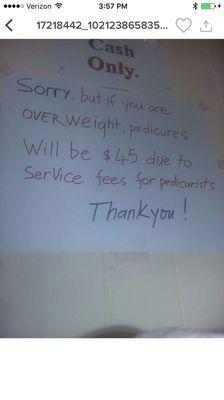 Verizon 3:57 PM
17218442_102123865835...
Cash
Only.
Sorry, but if you are
OVERWeight, pedicures
Will be $45 due to
Service fees for pedicurists
Thankyou!